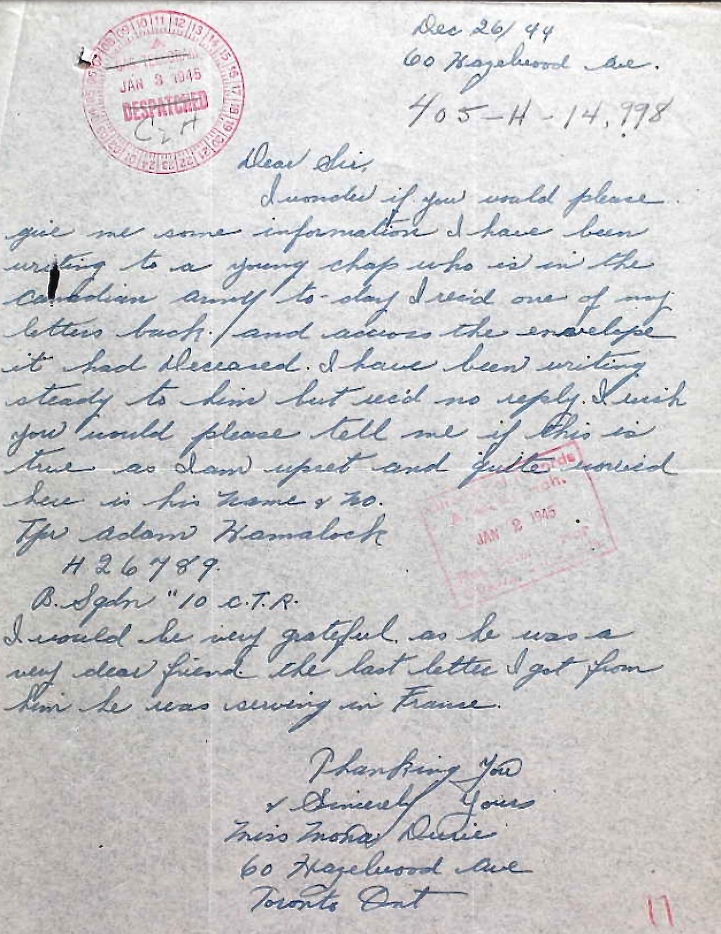 Dec 26/44
60 Hazelwood Ave.
405-H-14,998
JAN 3 1945
DESPATCHED
Dear Sir,
I wonder if you would please
give me some information I have been
writing to a young chap who is in the
Canadian army to-day I rec'd one of my
letters back. and across the envelope
it had Deceased. I have been writing
steady to him but rec'd no reply. I wish
you would please tell me if this is
true as I am upset and quite worried
here is his name & no.
JAN 2 1945
Tpr Adam Hamalock
H 26789.
B. Sqdn "10 C.T.R.
I would be very grateful as he was a
very dear friend. the last letter I got from
him he was serving in France.
Thanking You
& Sincerely Yours
Miss Mona Durie
60 Hazelwood Ave
Toronto Ont
17